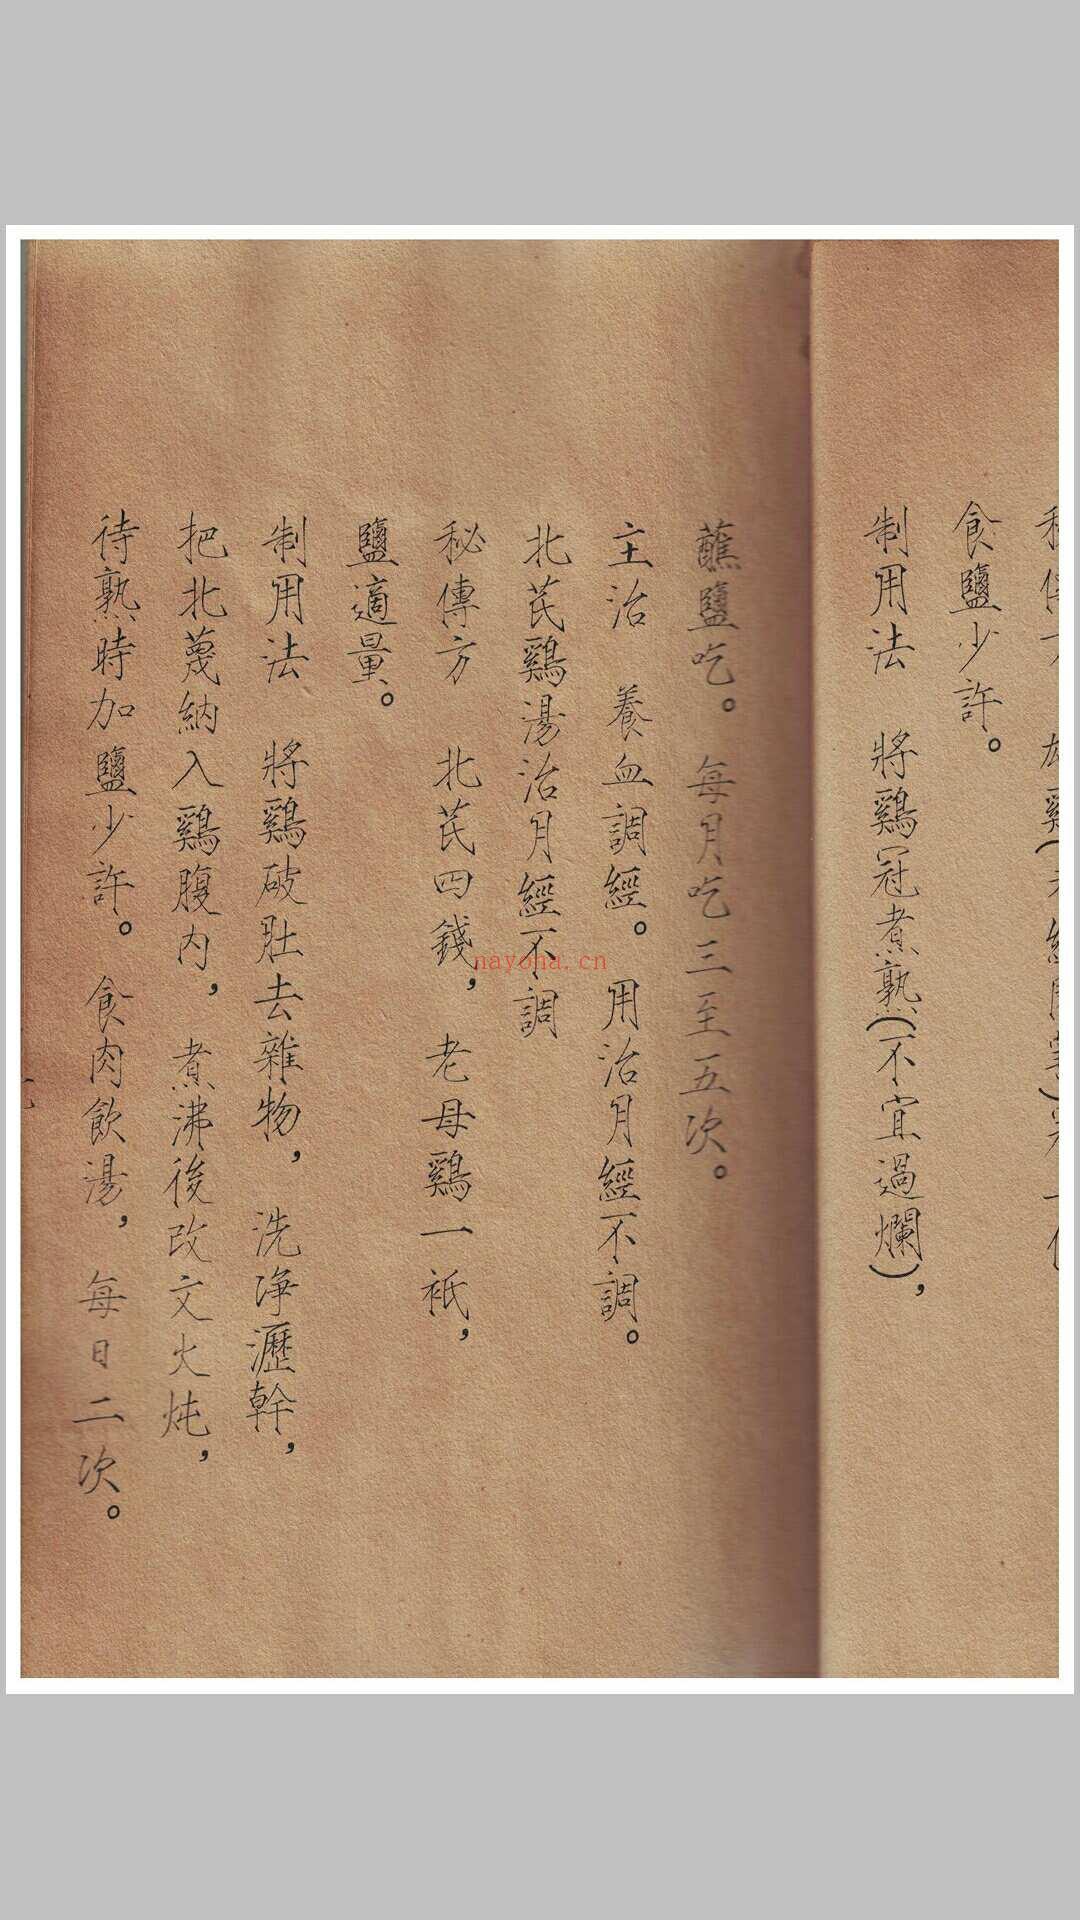 食鹽少許。
制用法 將鷄冠煮熟(不宜過爛),
蘸鹽吃。每月吃三至五次。
主治 養血調經。用治月經不調。
北芪鷄湯治月經不調
秘傳方 北芪四錢,老母鷄一衹,
鹽適量。
制用法 將鷄破肚去雜物,洗净瀝幹,
把北蔑納入鷄腹内,煮沸後改文火炖,
待熟時加鹽少許。食肉飲湯,每日二次。
nayona.cn